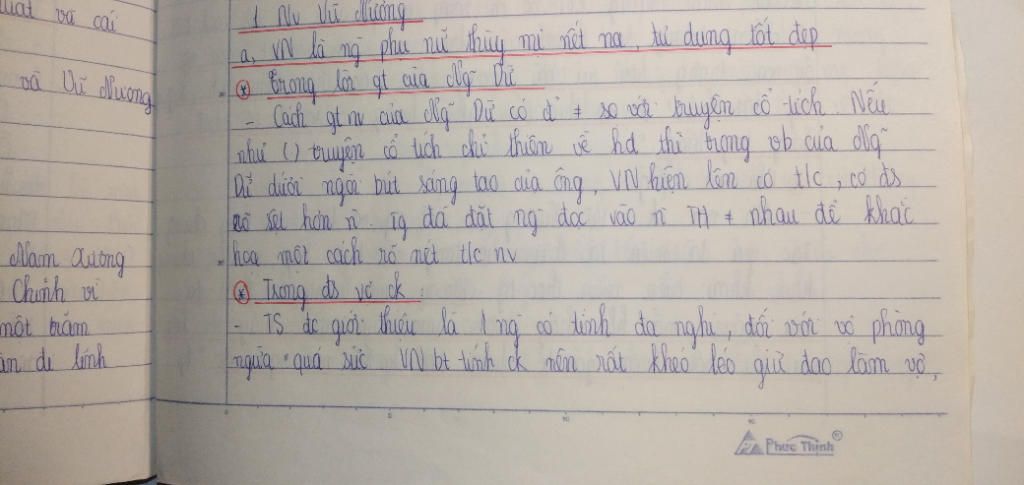 luật và cái
và Vũ Nương
Nam Xương
Chính vì
một trăm
đi lính
1 Nv Vũ Nương
a, VN là ng phụ nữ thùy mị nết na, tư dung tốt đẹp
* Trong lời gt của Ngữ Dữ
- Cách gt nv của Ngữ Dữ có đ² ≠ so với truyện cổ tích. Nếu
như () truyện cổ tích chỉ thiên về hđ thì trong vb của Ngữ
Dữ dưới ngòi bút sáng tạo của ông, VN hiện lên có t/c, có đs
rõ rệt hơn. Tg đã đặt ng đọc vào n TH ≠ nhau để khắc
họa một cách rõ nét t/c nv
* Trong đs vợ ck
- TS đc giới thiệu là 1 ng có tính đa nghi, đối với vợ phòng
ngừa quá sức. VN bt tính ck nên rất khéo léo giữ đạo làm vợ,
Phúc Thịnh